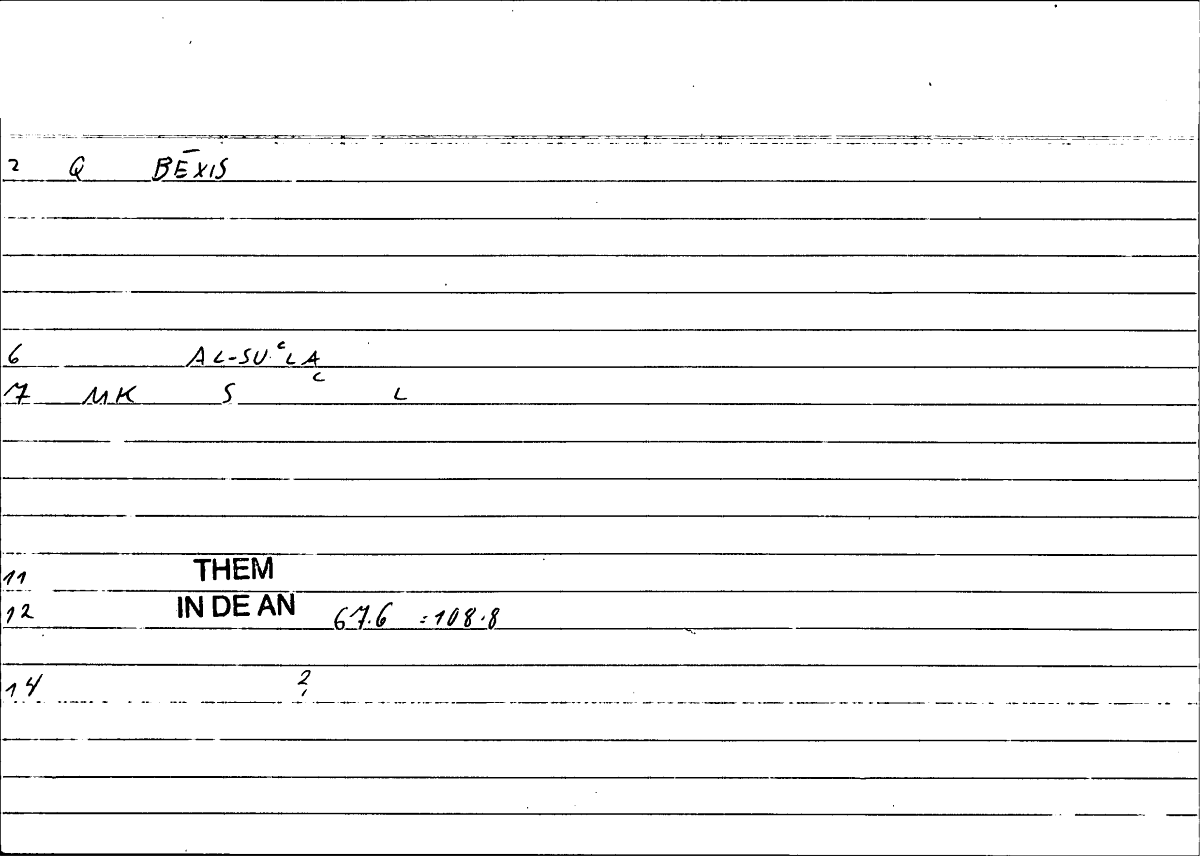 2 Q BĒXIS
6 AL-SUʿLA
7 MK S ʿ L
11 THEM
12 IN DE AN 67.6 =108.8
14 ?